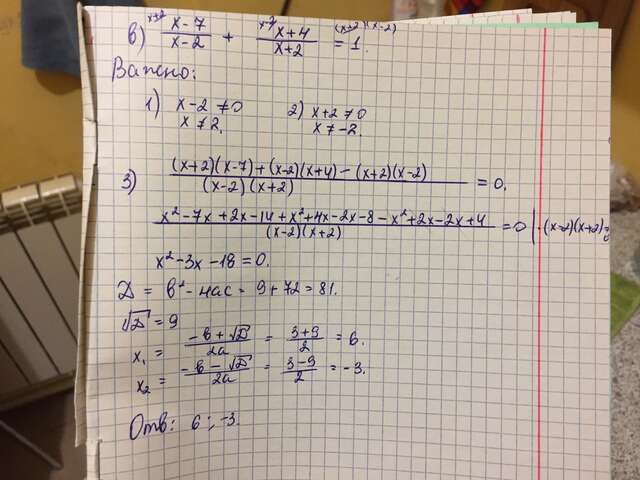 в) x+2 x-7/x-2 + x-2 x+4/x+2 (x+2)(x-2) = 1.
Важно:
1) x-2 ≠ 0 2) x+2 ≠ 0
x ≠ 2. x ≠ -2.
3) (x+2)(x-7)+(x-2)(x+4)-(x+2)(x-2)/(x-2)(x+2) = 0.
x²-7x+2x-14+x²+4x-2x-8-x²+2x-2x+4/(x-2)(x+2) = 0 | ·(x-2)(x+2)
x²-3x-18=0.
D = b²-4ac = 9+72=81.
√D = 9
x₁ = -b+√D/2a = 3+9/2 = 6.
x₂ = -b-√D/2a = 3-9/2 = -3.
Отв: 6; -3.